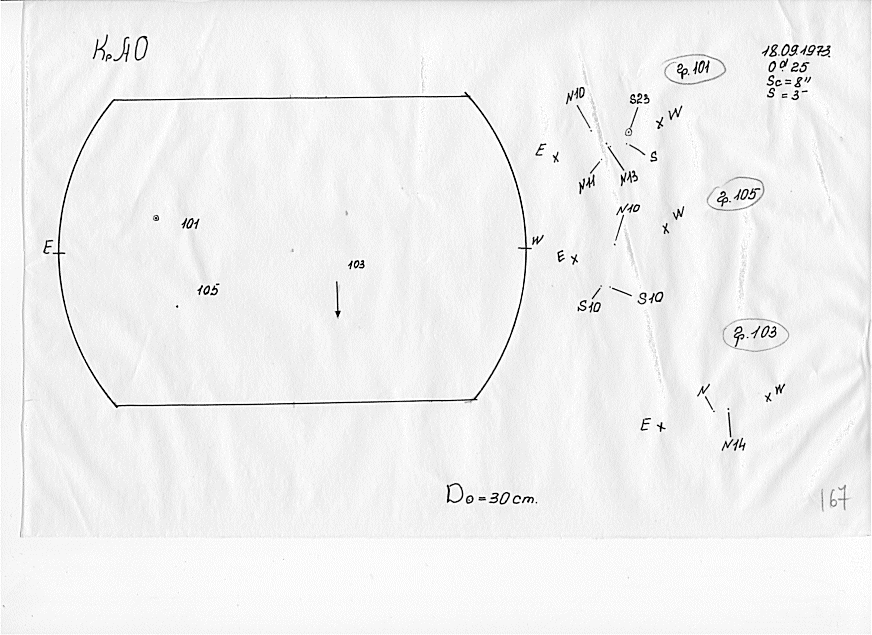 КрАО
18.09.1973.
0ᵈ.25
Sc = 8"
S = 3-
гр. 101
N10
S23
W
E
S
N11
N13
гр. 105
N10
W
E
S10
S10
гр. 103
N
W
E
N14
E
W
101
105
103
D⊙ = 30 cm.
167